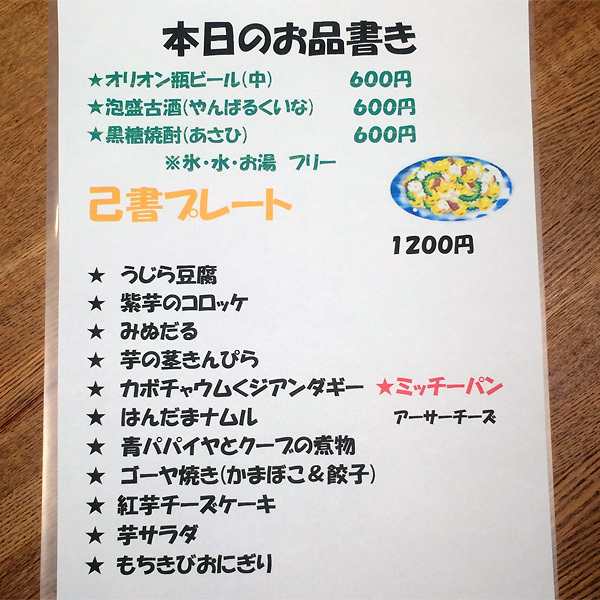 本日のお品書き
★オリオン瓶ビール(中) 600円
★泡盛古酒(やんばるくいな) 600円
★黒糖焼酎(あさひ) 600円
※氷・水・お湯 フリー
己書プレート
1200円
★ うじら豆腐
★ 紫芋のコロッケ
★ みぬだる
★ 芋の茎きんぴら
★ カボチャウムくジアンダギー ★ミッチーパン
★ はんだまナムル アーサーチーズ
★ 青パパイヤとクーブの煮物
★ ゴーヤ焼き(かまぼこ＆餃子)
★ 紅芋チーズケーキ
★ 芋サラダ
★ もちきびおにぎり